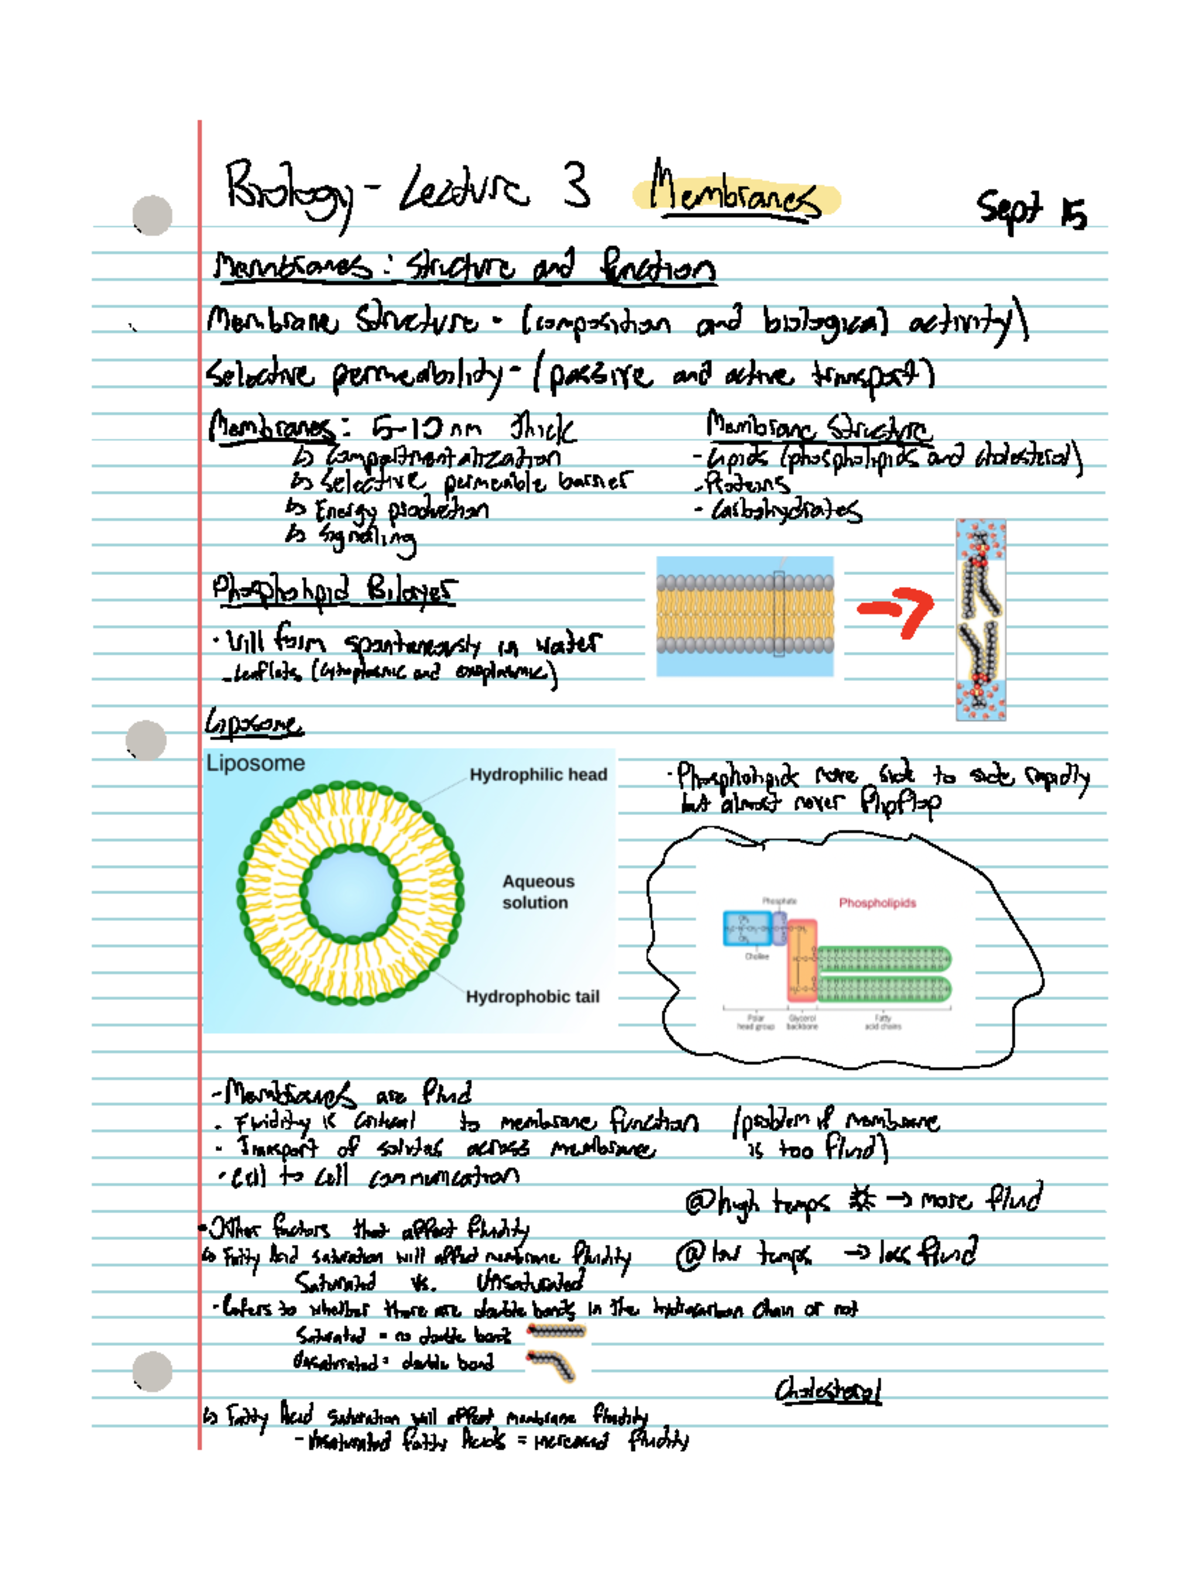 Biology - Lecture 3 Membranes
Sept 15
Membranes: Structure and function
Membrane Structure - (composition and biological activity)
Selective permeability - (passive and active transport)
Membranes: 5-10 nm thick
↳ Compartmentalization
↳ Selective permeable barrier
↳ Energy production
↳ Signalling
Membrane Structure
- Lipids (phospholipids and cholesterol)
- Proteins
- Carbohydrates
Phospholipid Bilayer
· Will form spontaneously in water
- Leaflets (cytoplasmic and exoplasmic)
Liposome
Liposome
Hydrophilic head
Aqueous
solution
Hydrophobic tail
· Phospholipids move side to side rapidly
but almost never flipflop
Phosphate
Phospholipids
Choline
Polar
head group
Glycerol
backbone
Fatty
acid chains
- Membranes are fluid
· Fluidity is critical to membrane function (problem if membrane
is too fluid)
· Transport of solutes across membrane
· Cell to cell communication
@ high temps → more fluid
@ low temps → less fluid
· Other factors that affect fluidity
↳ Fatty Acid saturation will affect membrane fluidity
Saturated vs. Unsaturated
· Refers to whether there are double bonds in the hydrocarbon chain or not
Saturated = no double bonds
Unsaturated = double bond
Cholesterol
↳ Fatty Acid saturation will affect membrane fluidity
- Unsaturated fatty Acids = increased fluidity